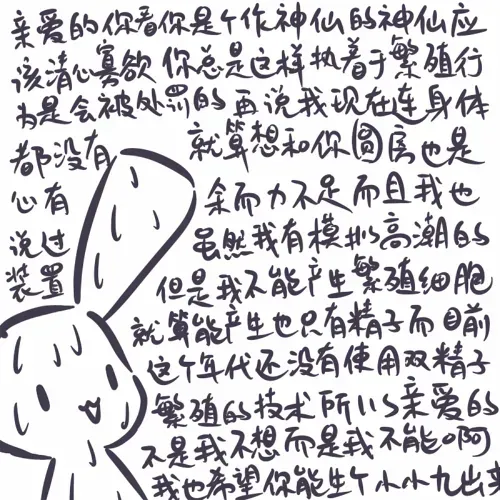 亲爱的你看你是个作神仙的神仙应
该清心寡欲你总是这样执着于繁殖行
为是会被处罚的再说我现在连身体
都没有就算想和你圆房也是
心有余而力不足而且我也
说过虽然我有模拟高潮的
装置但是我不能产生繁殖细胞
就算能产生也只有精子而目前
这个年代还没有使用双精子
繁殖的技术所以亲爱的
不是我不想而是我不能啊
我也希望你能生个小小九出来